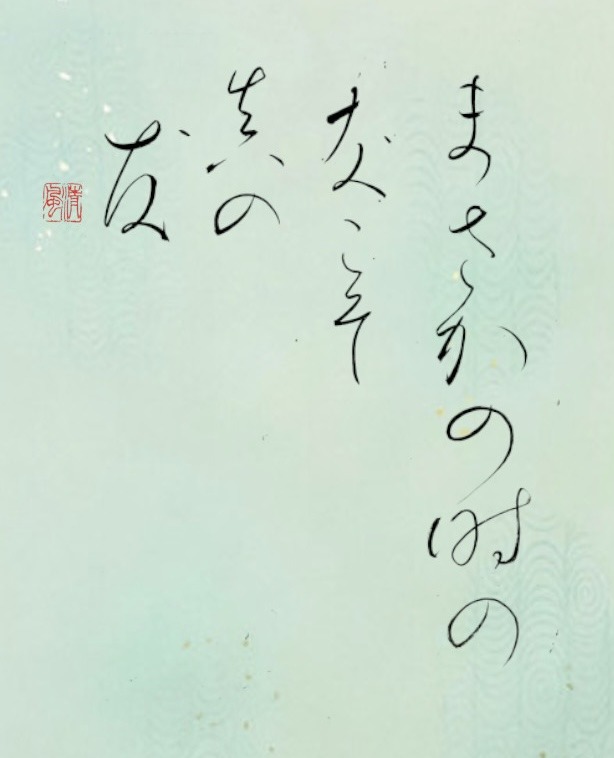 まさかの時の
友こそ
真の
友
清風